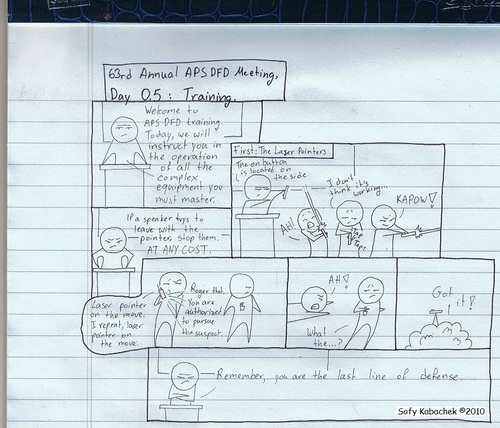 63rd Annual APS DFD Meeting,
Day 0.5 : Training.
Welcome to
APS DFD training.
Today, we will
instruct you in
the operation
of all the
complex
equipment you
must master.
First: The Laser Pointers.
The on button
is located on
the side.
I don't
think it's
working...
AH!
TAP
TAP
KAPOW!
If a speaker tries to
leave with the
pointer, stop them.
AT ANY COST.
Laser pointer
on the move.
I repeat, laser
pointer on
the move.
Roger that.
You are
authorized
to pursue
the suspect.
AH!
What
the...?
Got
it!
Remember, you are the last line of defense.
Sofy Kabachek ©2010